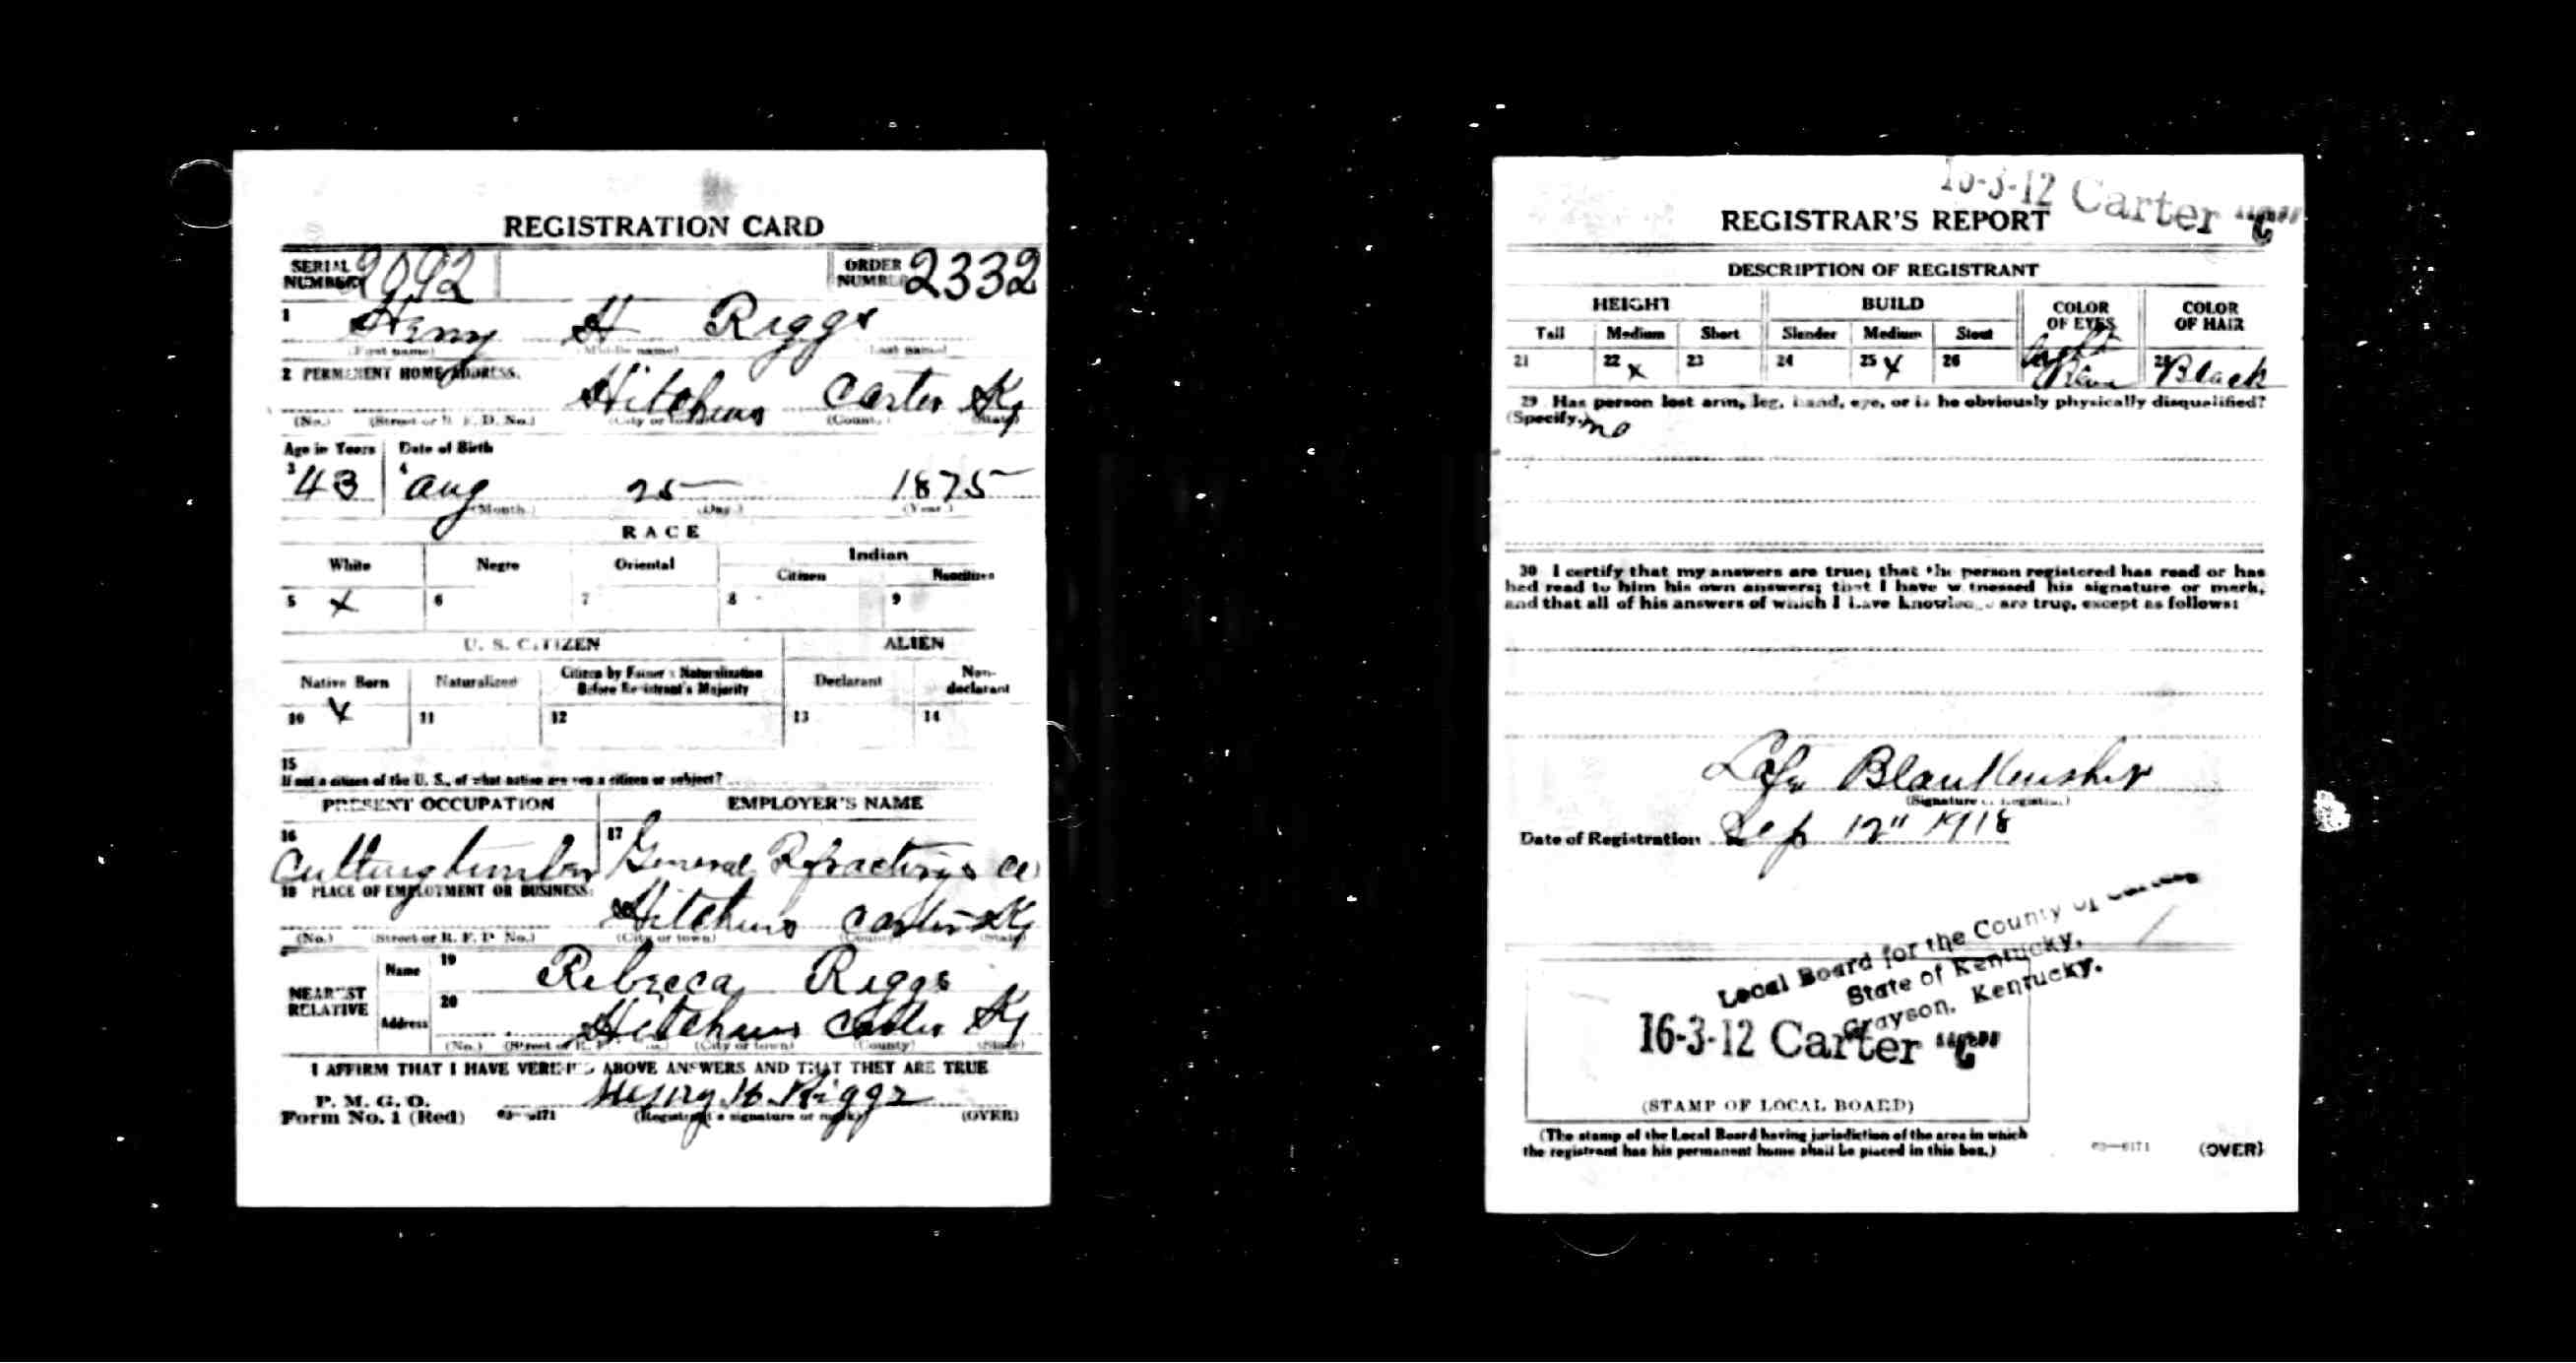 REGISTRATION CARD
SERIAL NUMBER 2092 ORDER NUMBER 2332
1 Henry H Riggs
(First name) (Middle name) (Last name)
2 PERMANENT HOME ADDRESS.
Hitchins Carter Ky
(No.) (Street or R. F. D. No.) (City or town) (County) (State)
Age in Years Date of Birth
3 43 4 Aug 25 1875
(Month.) (Day.) (Year.)
RACE
White Negro Oriental Indian
Citizen Noncitizen
5 X 6 7 8 9
U. S. CITIZEN ALIEN
Native Born Naturalized Citizen by Father's Naturalization Before Registrant's Majority Declarant Non-declarant
10 X 11 12 13 14
15
If not a citizen of the U. S., of what nation are you a citizen or subject?
PRESENT OCCUPATION EMPLOYER'S NAME
16 Cutting timber 17 General Refractories Co
18 PLACE OF EMPLOYMENT OR BUSINESS:
Hitchins Carter Ky
(No.) (Street or R. F. D. No.) (City or town) (County) (State)
NEAREST RELATIVE
Name 19 Rebecca Riggs
Address 20 Hitchins Carter Ky
(No.) (Street or R. F. D. No.) (City or town) (County) (State)
I AFFIRM THAT I HAVE VERIFIED ABOVE ANSWERS AND THAT THEY ARE TRUE
P. M. G. O.
Form No. 1 (Red) 03—6171 Henry H. Riggs
(Registrant's signature or mark) (OVER)
16-3-12 Carter "C"
REGISTRAR'S REPORT
DESCRIPTION OF REGISTRANT
HEIGHT BUILD COLOR OF EYES COLOR OF HAIR
Tall Medium Short Slender Medium Stout
21 22 X 23 24 25 X 26 Light Blue 28 Black
29 Has person lost arm, leg, hand, eye, or is he obviously physically disqualified?
(Specify.) no
30 I certify that my answers are true; that the person registered has read or has
had read to him his own answers; that I have witnessed his signature or mark,
and that all of his answers of which I have knowledge are true, except as follows:
Lafe Blankenship
(Signature of Registrar)
Date of Registration Sep 12" 1918
Local Board for the County of Carter
State of Kentucky,
Grayson, Kentucky.
16-3-12 Carter "C"
(STAMP OF LOCAL BOARD)
(The stamp of the Local Board having jurisdiction of the area in which
the registrant has his permanent home shall be placed in this box.)
03—6171 (OVER)